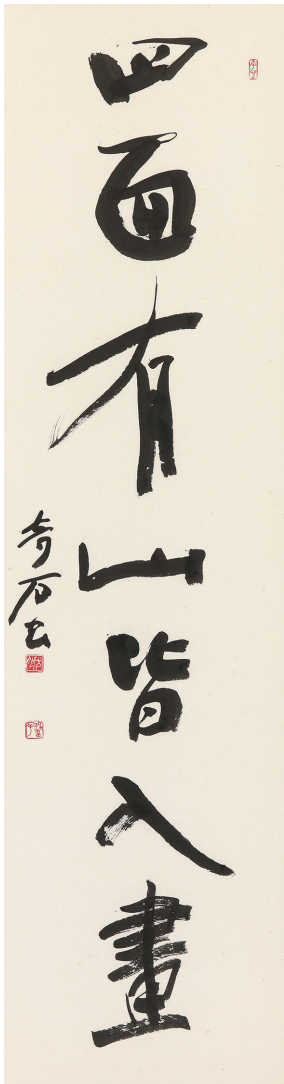 四面有山皆入畫
奇石书